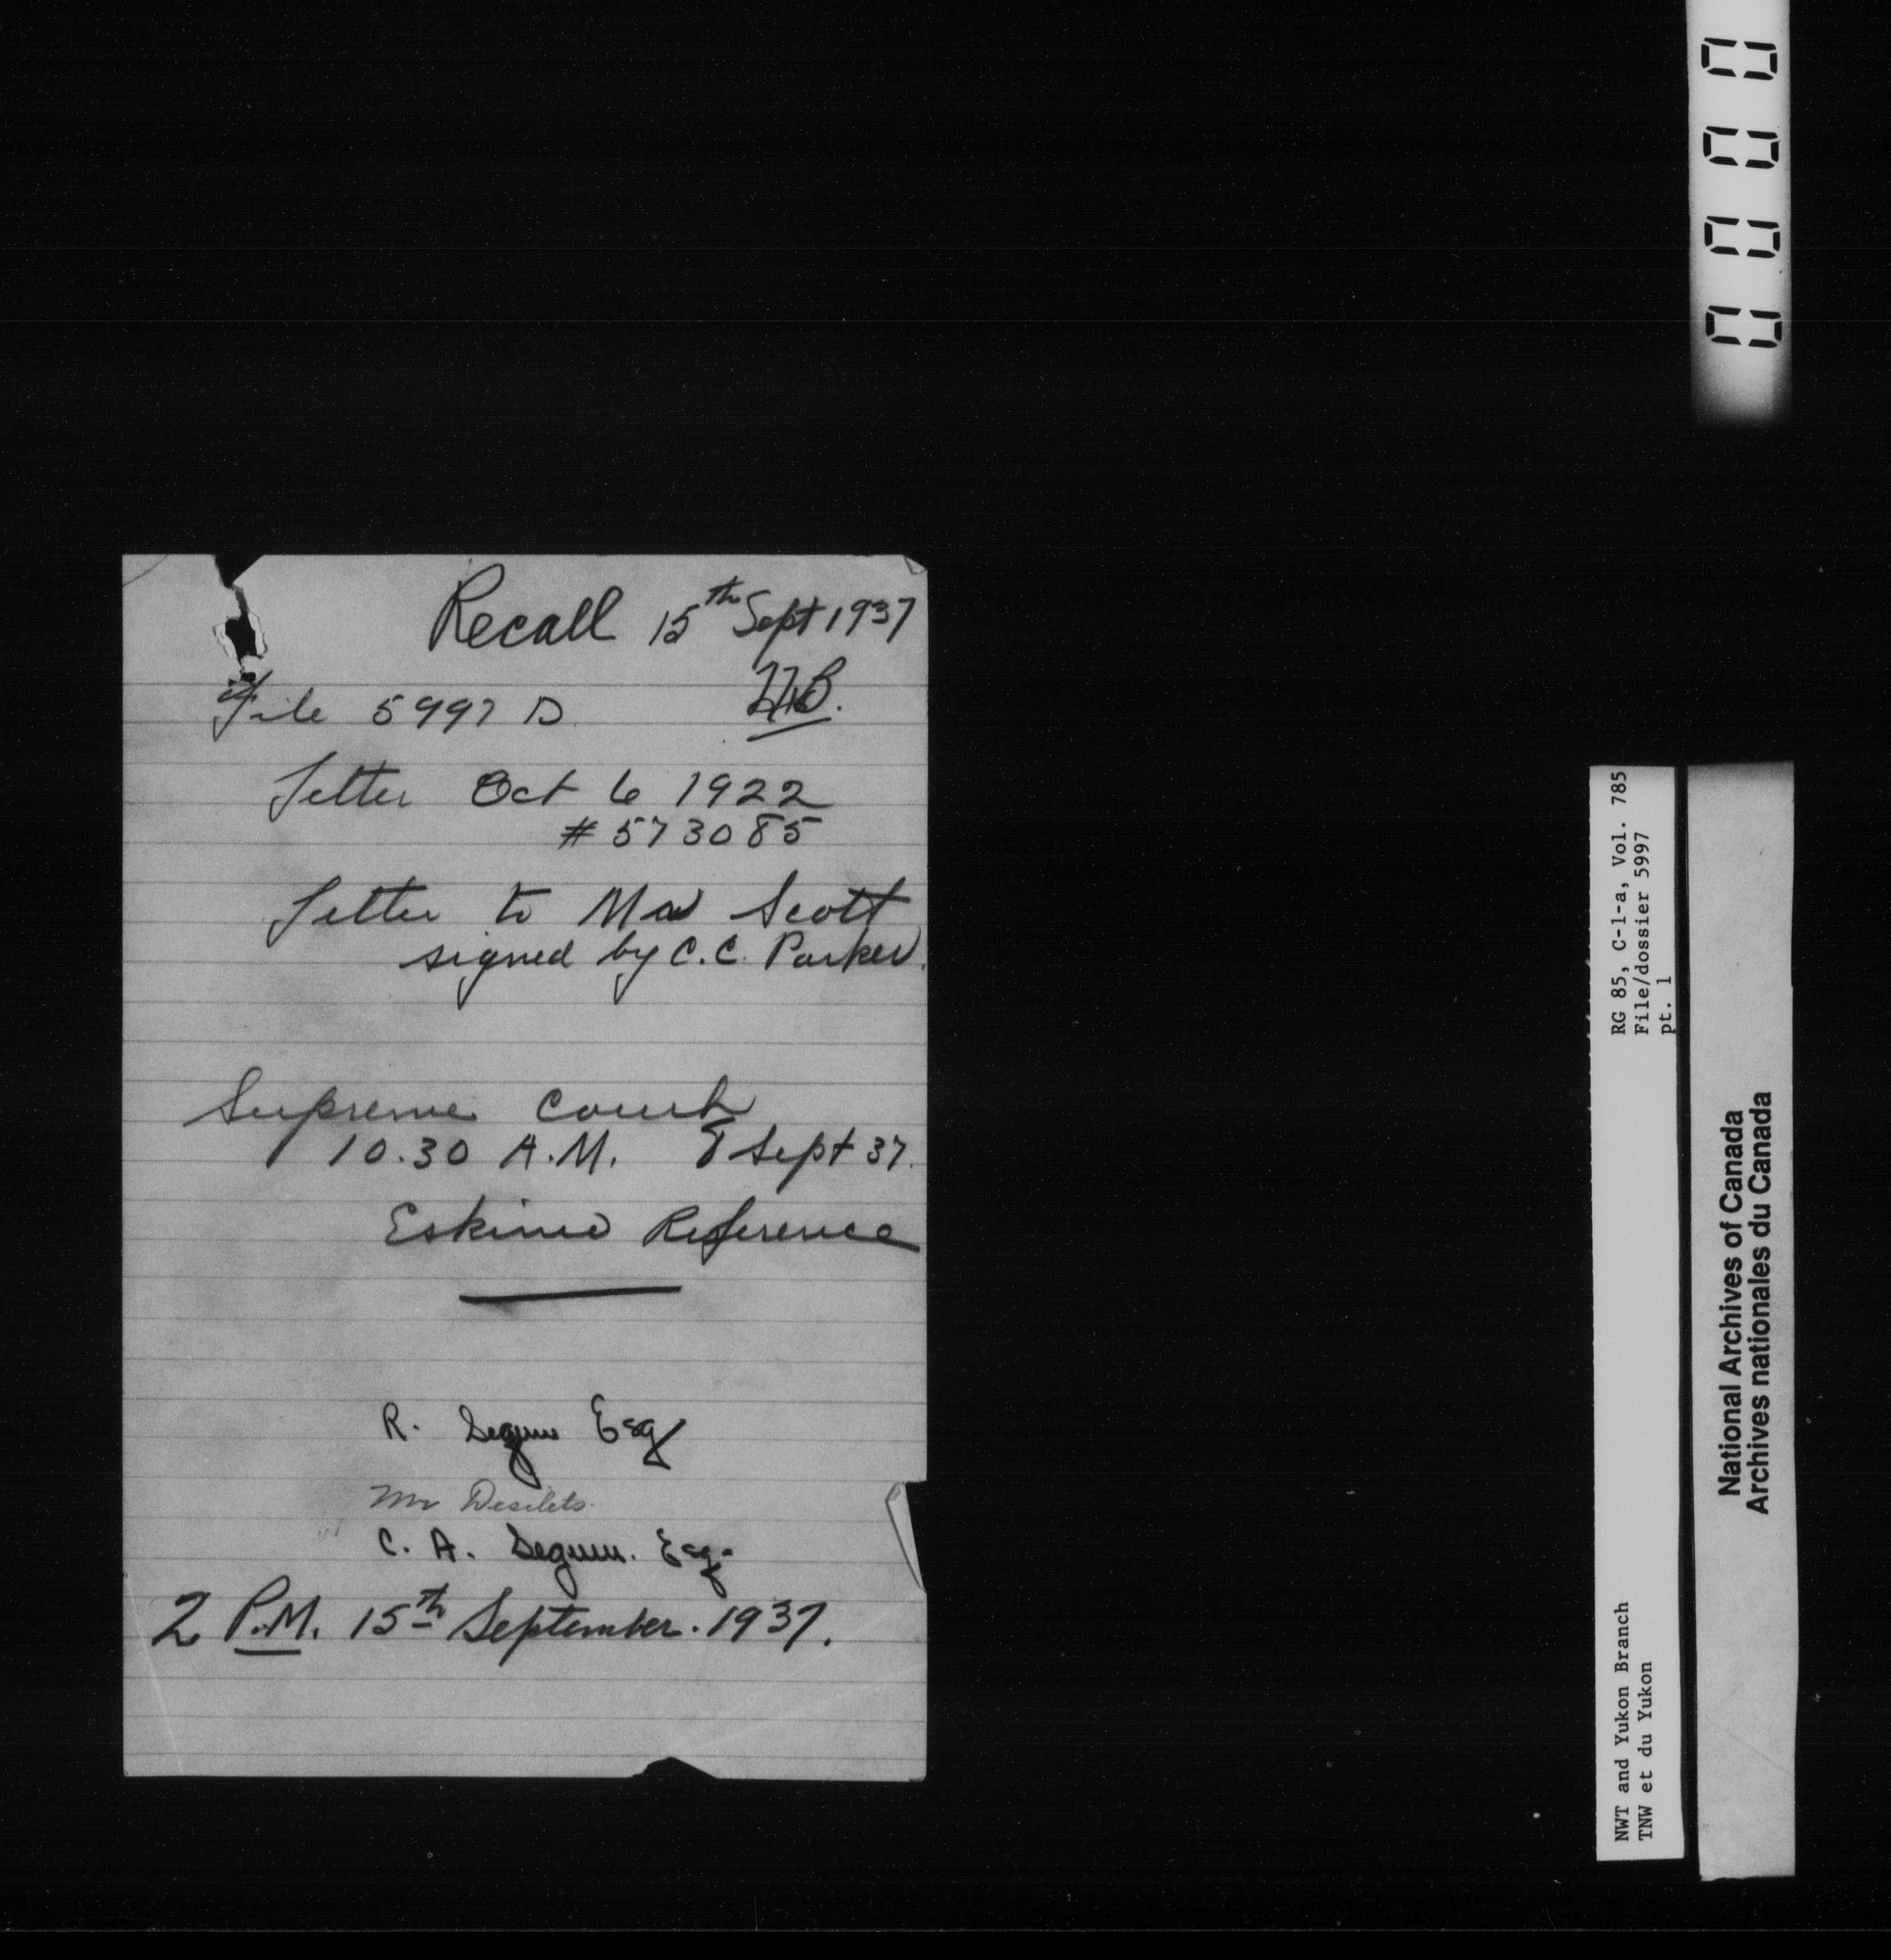 Recall 15th Sept 1937
File 5997 D
Letter Oct 6 1922
# 573085
Letter to Mr Scott
signed by C.C. Parker.
Supreme Court
10.30 A.M. 8 Sept 37.
Eskimo Reference
R. Seguin Esq
Mr Desilets.
C. A. Seguin. Esq.
2 P.M. 15th September. 1937.
0000
RG 85, C-1-a, Vol. 785
File/dossier 5997
pt. 1
NWT and Yukon Branch
TNW et du Yukon
National Archives of Canada
Archives nationales du Canada